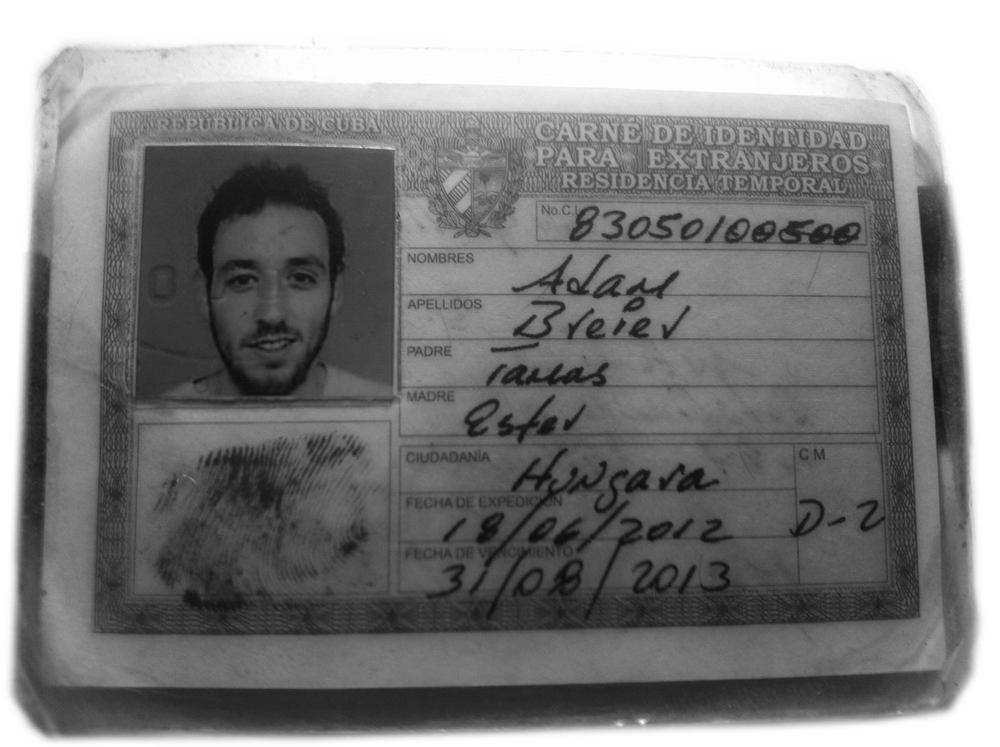 REPUBLICA DE CUBA
CARNÉ DE IDENTIDAD
PARA EXTRANJEROS
RESIDENCIA TEMPORAL
No.C.I. 83050100500
NOMBRES Adam
APELLIDOS Breier
PADRE Tamas
MADRE Ester
CIUDADANÍA Húngara
C M D-2
FECHA DE EXPEDICIÓN 18/06/2012
FECHA DE VENCIMIENTO 31/08/2013